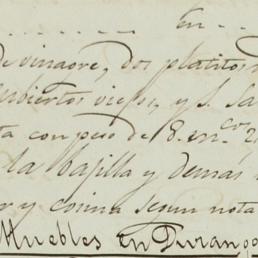 En
de vinagre, dos platitos
cubiertos viejos, y S. Sa
ta con peso de 8. en.cos 2
la bajilla y demas
r y cosina segun nota
Muebles en Durango